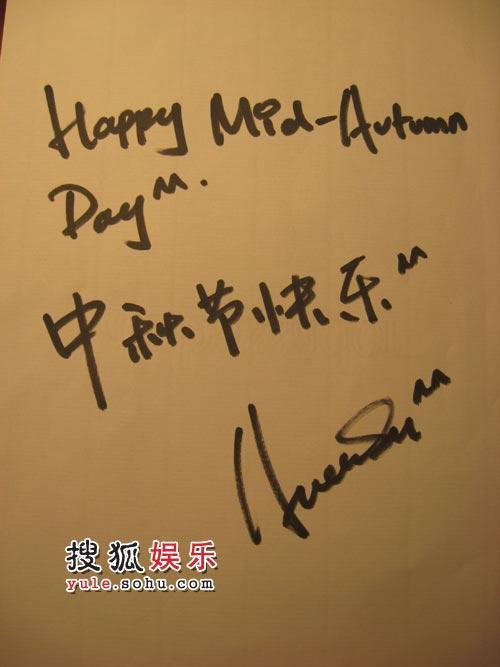 Happy Mid-Autumn
Day^^.
中秋节快乐^^
搜狐娱乐
yule.sohu.com